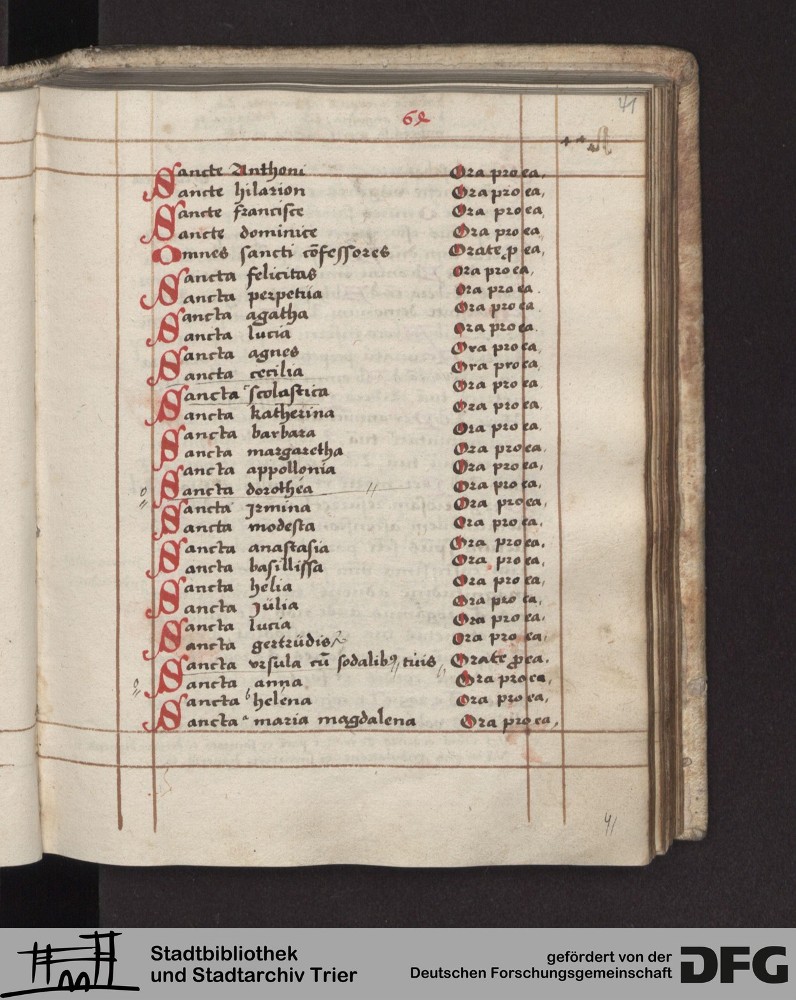 41
62
Sancte Anthoni Ora pro ea,
Sancte hilarion Ora pro ea,
Sancte francisce Ora pro ea
Sancte dominice Ora pro ea,
Omnes sancti cōfessores Orate ꝓ ea,
Sancta felicitas Ora pro ea,
Sancta perpetüa Ora pro ea,
Sancta agatha Ora pro ea
Sancta lucia Ora pro ea.
Sancta agnes Ora pro ea,
Sancta cecilia Ora pro ea
Sancta scolastica Ora pro ea,
Sancta katherina Ora pro ea,
Sancta barbara Ora pro ea,
Sancta margaretha Ora pro ea,
Sancta appollonia Ora pro ea,
Sancta dorothea Ora pro ea,
Sancta Irmina Ora pro ea,
Sancta modesta Ora pro ea,
Sancta anastasia Ora pro ea,
Sancta basillissa Ora pro ea,
Sancta helia Ora pro ea,
Sancta Jülia Ora pro ea,
Sancta lucia Ora pro ea,
Sancta gertrüdis Ora pro ea,
Sancta vrsula cū sodalibꝰ tüis, Orate ꝓ ea,
Sancta anna Ora pro ea,
Sancta b helena Ora pro ea,
Sancta a maria magdalena Ora pro ea,
41
Stadtbibliothek
und Stadtarchiv Trier
gefördert von der
Deutschen Forschungsgemeinschaft
DFG